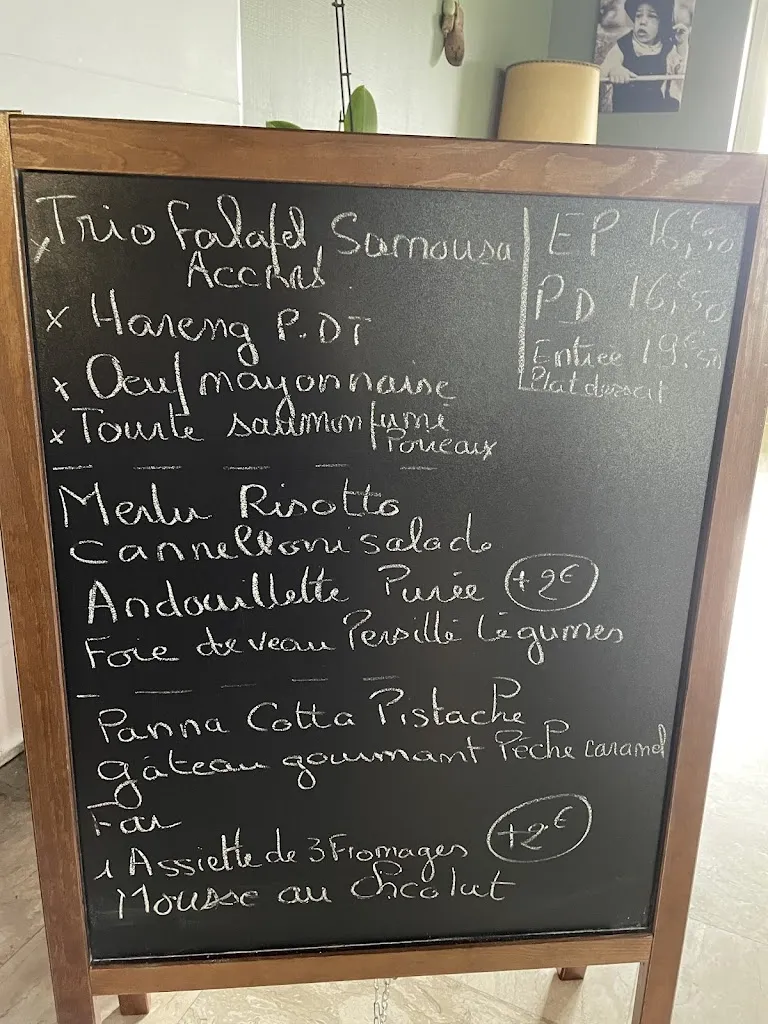 x Trio Falafel, Samousa
Accras.
x Hareng P.DT
x Oeuf mayonnaise
x Tourte saumon fumé
Poireaux
EP 16,50
PD 16,50
Entrée 19.50
Plat dessert
Merlu Risotto
Cannelloni salade
Andouillette Purée +2€
Foie de veau Persillé Légumes
Panna Cotta Pistache
gâteau gourmant Pêche caramel
Far
1 Assiette de 3 Fromages +2€
Mousse au Chcolat